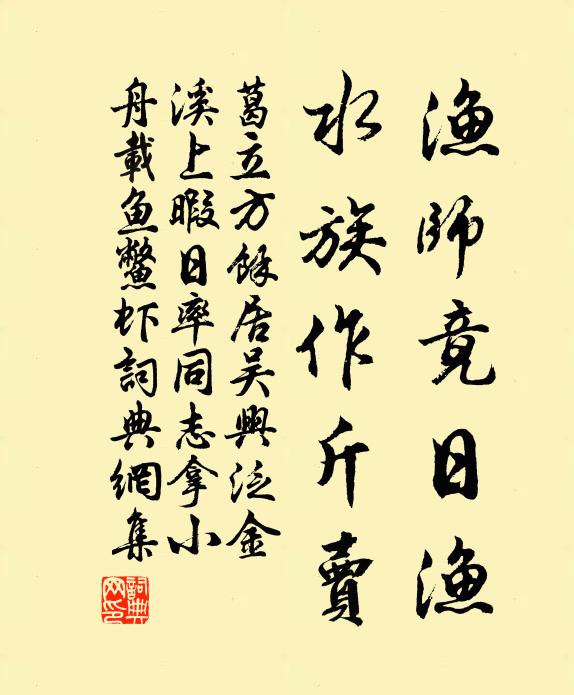 漁師竟日漁
水族作斤賣
葛立方餘居吴興泛金
溪上暇日率同志拿小
舟載鱼鱉虾詞典網集
詞典网印